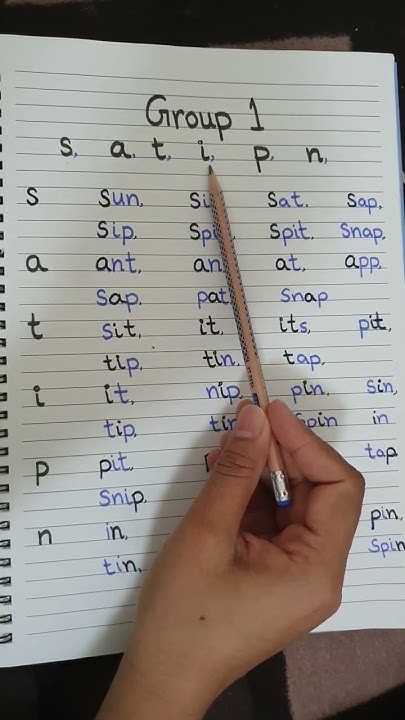 Group 1
s, a, t, i, p, n,
s sun, sat. sap,
sip. spit. snap,
a ant, at, app,
sap. pat snap
t sit, it, its, pit,
tip, tin, tap,
i it, nip, pin, sin,
tip, spin in
p pit, tap
snip.
n in, pin,
tin, spin